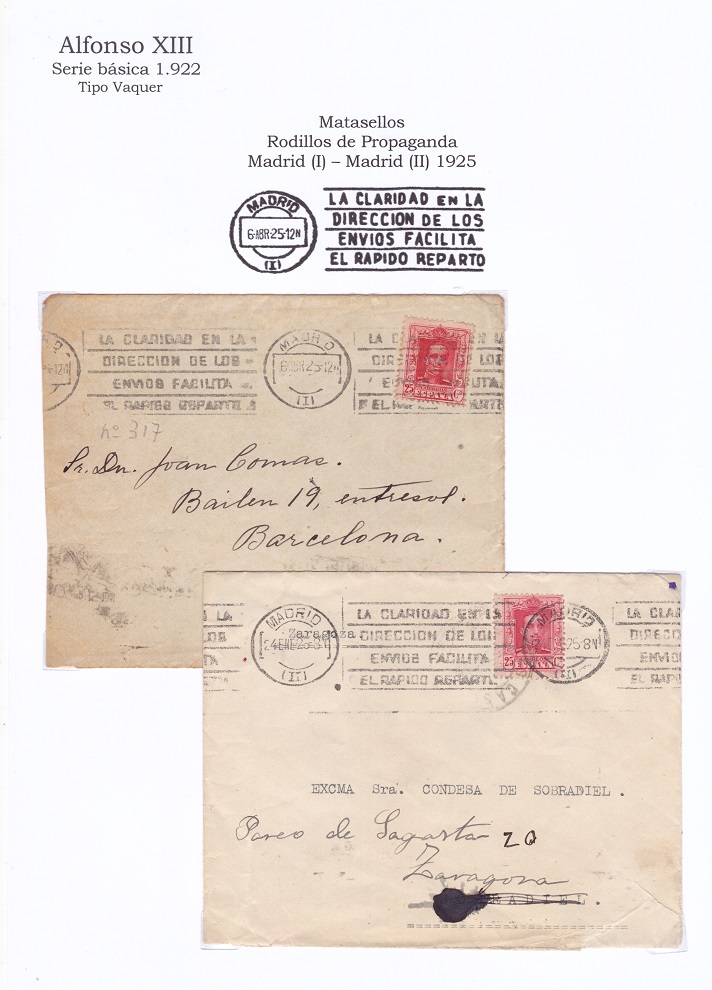 Alfonso XIII
Serie básica 1.922
Tipo Vaquer
Matasellos
Rodillos de Propaganda
Madrid (I) – Madrid (II) 1925
MADRID
6·ABR·25·12N
(I)
LA CLARIDAD EN LA
DIRECCION DE LOS
ENVIOS FACILITA
EL RAPIDO REPARTO
LA CLARIDAD EN LA
DIRECCION DE LOS
ENVIOS FACILITA
EL RAPIDO REPARTO
MADRID
6·ABR·25·12N
(I)
25 ESPAÑA
nº 317
Sr. Dn. Joan Comas.
Bailen 19, entresol.
Barcelona.
MADRID
Zaragoza
(II)
LA CLARIDAD EN LA
DIRECCION DE LOS
ENVIOS FACILITA
EL RAPIDO REPARTO
25
MADRID
(II)
LA CLAR
EXCMA Sra. CONDESA DE SOBRADIEL.
Paseo de Sagasta 20
Zaragoza
ADIEL.